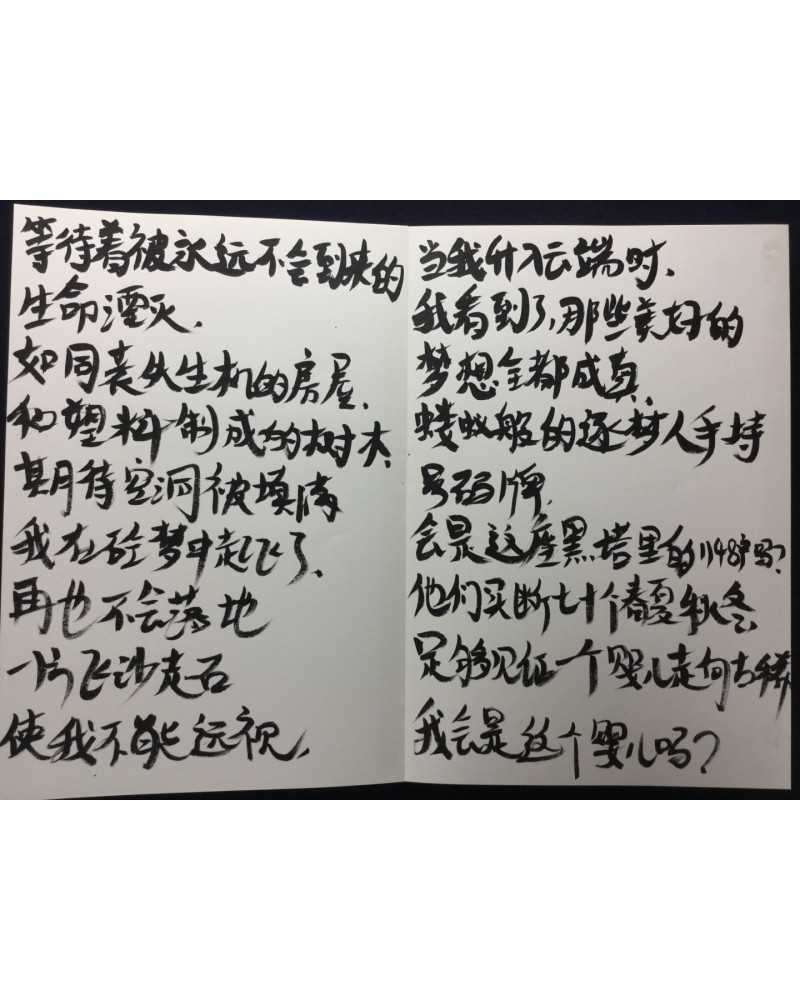 等待着被永远不会到来的
生命湮灭.
如同丧失生机的房屋.
和塑料制成的树木.
期待空洞被填满
我在砼梦中起飞了、
再也不会落地
一片飞沙走石
使我不能远视.
当我升入云端时、
我看到了,那些美好的
梦想全都成真.
蝼蚁般的逐梦人手持
号码牌.
会是这座黑塔里的1148户吗?
他们买断七十个春夏秋冬.
足够见证一个婴儿走向古稀
我会是这个婴儿吗?